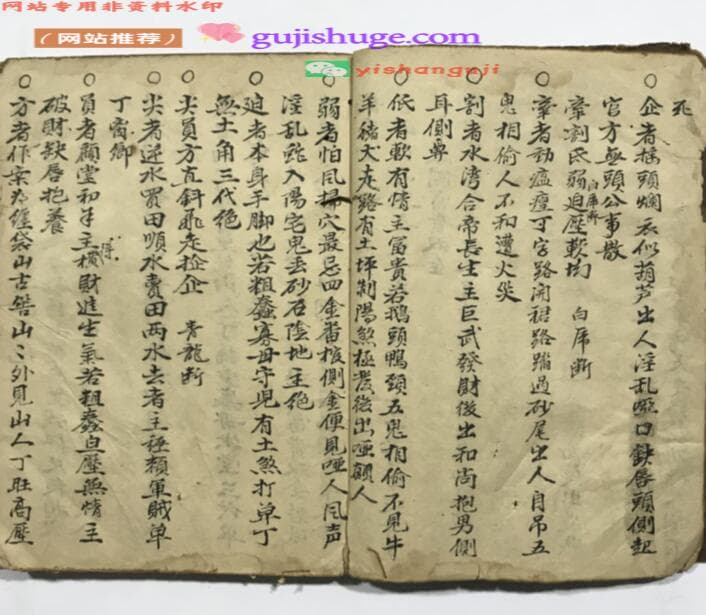 网站专用非资料水印
（网站推荐）
gujishuge.com
yishanguji
死
企者搖頭爛衣似葫芦出人淫乱啞口缺唇頭側起
官方無頭公事散
牽割低弱迫壓軟均 白虎断
白虎断
牽者劫瘟瘟丁字路開裙路踏过砂尾出人自吊五
鬼相偷人不和遭火災
割者水湾合帝長生主巨武發財後出和尚抱男側
耳側夀
低者軟有情主富貴若鵝頭鴨頸五鬼相偷不見牛
羊猪犬走路有土坪制陽煞極發後出啞顛人
弱者怕風掃穴最忌四金畨棺側金便見啞人風声
淫乱 入陽宅鬼丢砂石陰地主絶
迫者本身手脚也若粗蠢寡母守児有土煞打单丁
無土角三代绝
尖員方直斜飛走捡企 青龍断
尖者逆水買田順水賣田两水去者主 頼軍賊单
丁离鄉
員者顧堂初年主横財進生氣若粗蠢自壓無情主
破財缺唇抱養
方者作案为 袋山古 山〻外見山人丁旺高壓